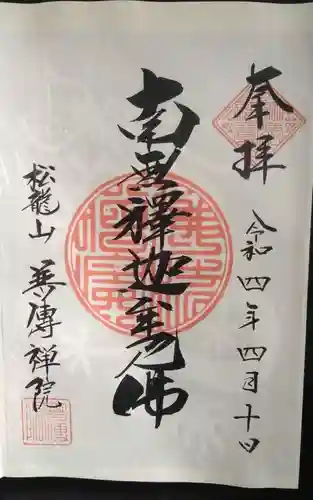 奉拝
令和四年四月十日
南無釋迦牟尼佛
松龍山
禅院